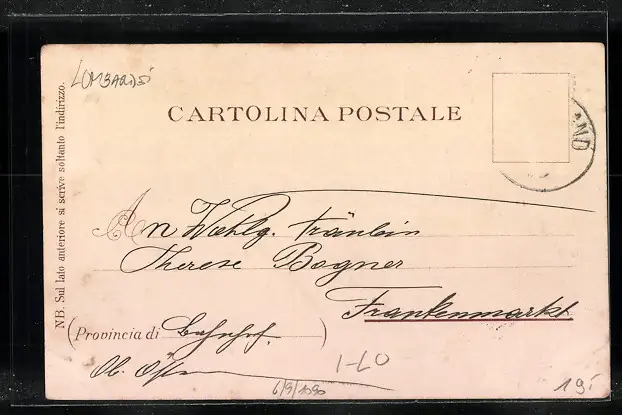 LOMBARDI
CARTOLINA POSTALE
AND
NB. Sul lato anteriore si scrive soltanto l'indirizzo.
An Wohlg. Fräulein
Therese Bogner
Frankenmarkt
(Provincia di Bahnhof.)
Ob. Öst
1-LO
6/9/
19